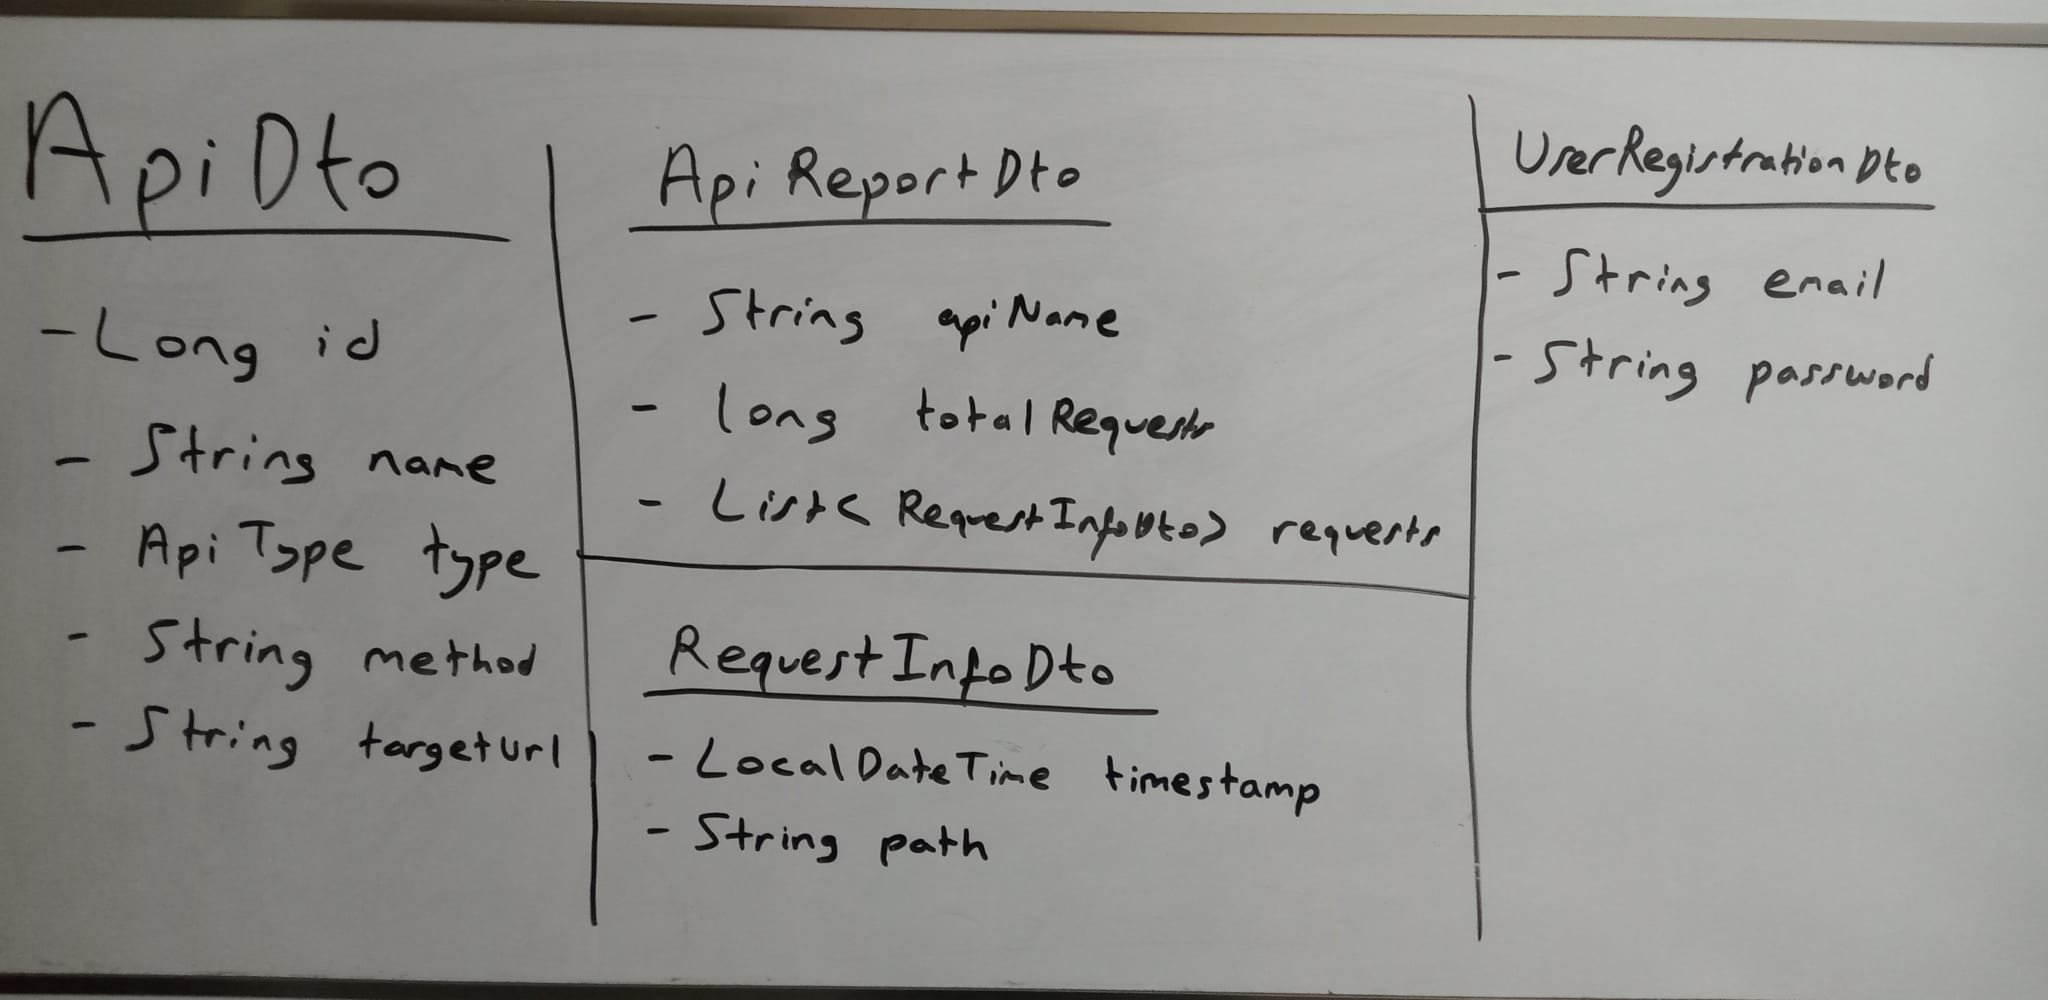 ApiDto
- Long id
- String name
- ApiType type
- String method
- String targetUrl
ApiReportDto
- String apiName
- long totalRequests
- List<RequestInfoDto> requests
RequestInfoDto
- LocalDateTime timestamp
- String path
UserRegistrationDto
- String email
- String password